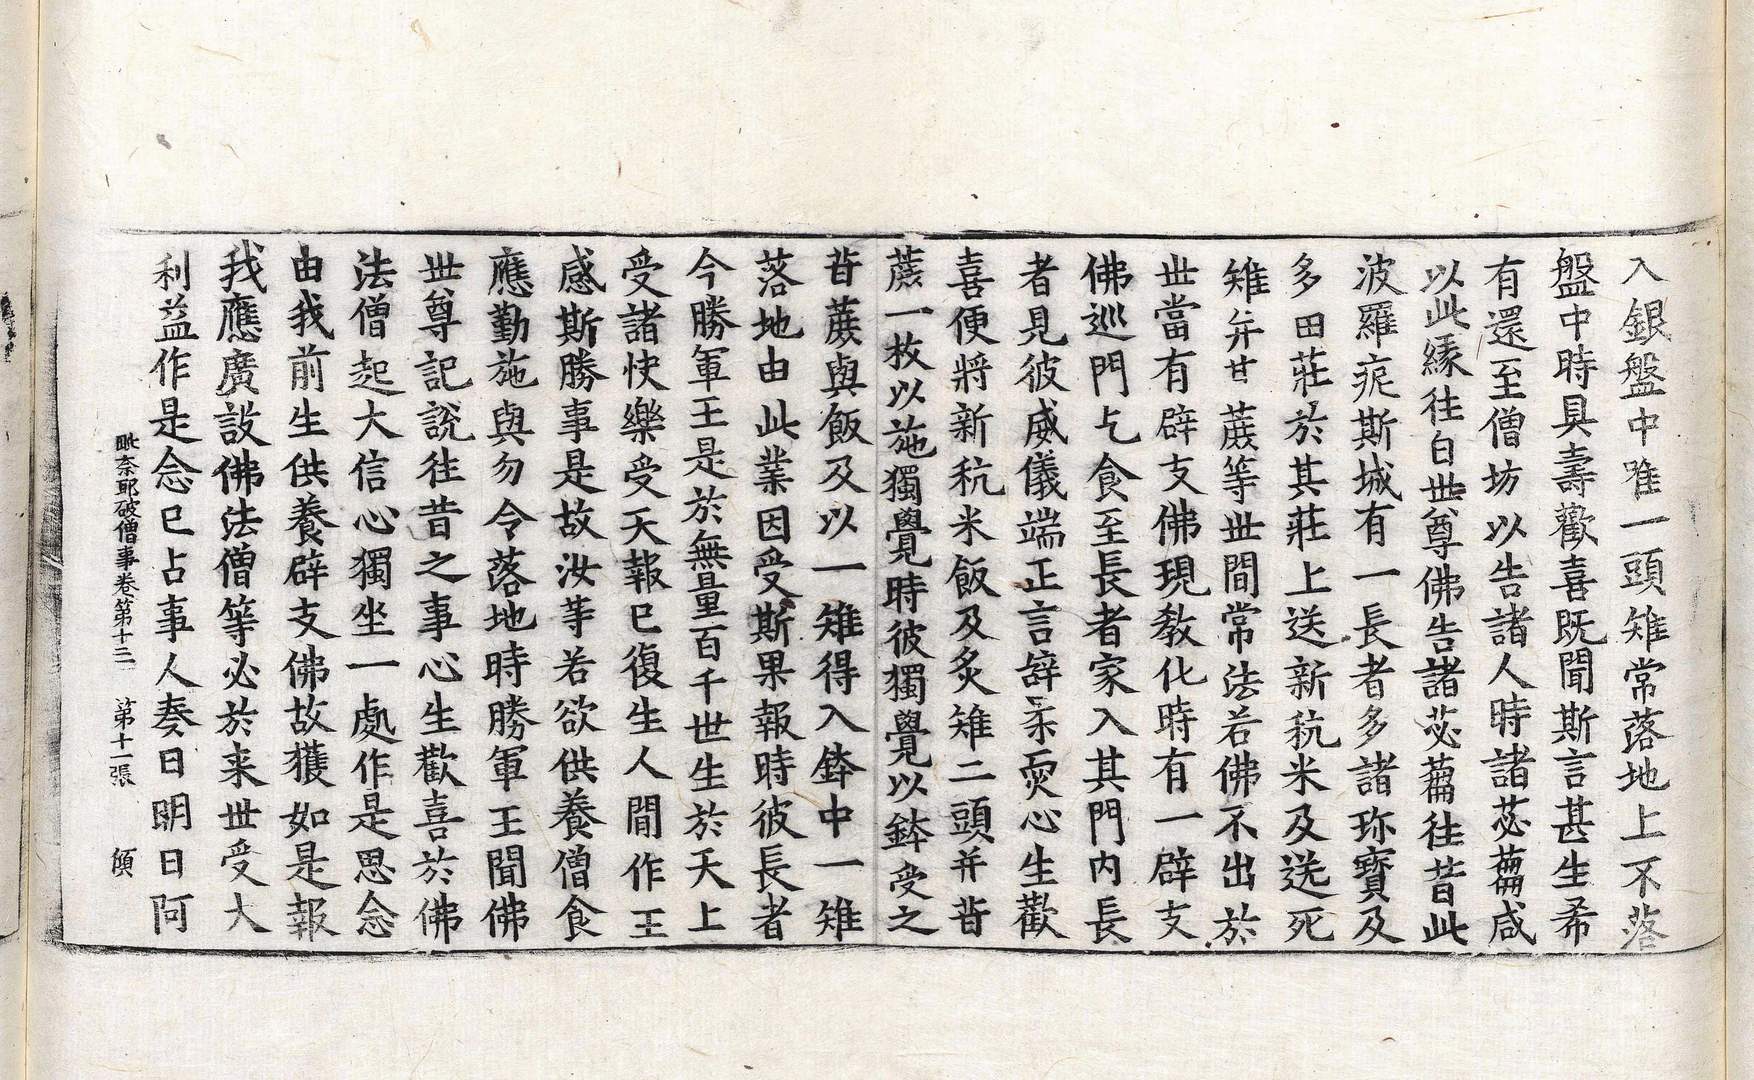 入銀盤中唯一頭雉常落地上不落
盤中時具壽歡喜既聞斯言甚生希
有還至僧坊以告諸人時諸苾蒭咸
以此緣往白世尊佛告諸苾蒭往昔此
波羅痆斯城有一長者多諸珎寳及
多田莊於其莊上送新秔米及送死
雉并甘蔗等世間常法若佛不出於
世當有辟支佛現教化時有一辟支
佛巡門乞食至長者家入其門內長
者見彼威儀端正言辝柔耎心生歡
喜便將新秔米飯及炙雉二頭并苷
蔗一枚以施獨覺時彼獨覺以鉢受之
苷蔗與飯及以一雉得入鉢中一雉
落地由此業因受斯果報時彼長者
今勝軍王是於無量百千世生於天上
受諸快樂受天報已復生人間作王
感斯勝事是故汝等若欲供養僧食
應勤施與勿令落地時勝軍王聞佛
世尊記說往昔之事心生歡喜於佛
法僧起大信心獨坐一處作是思念
由我前生供養辟支佛故獲如是報
我應廣設佛法僧等必於来世受大
利益作是念已占事人奏曰明日阿
毗奈耶破僧事卷第十三 第十一張 傾